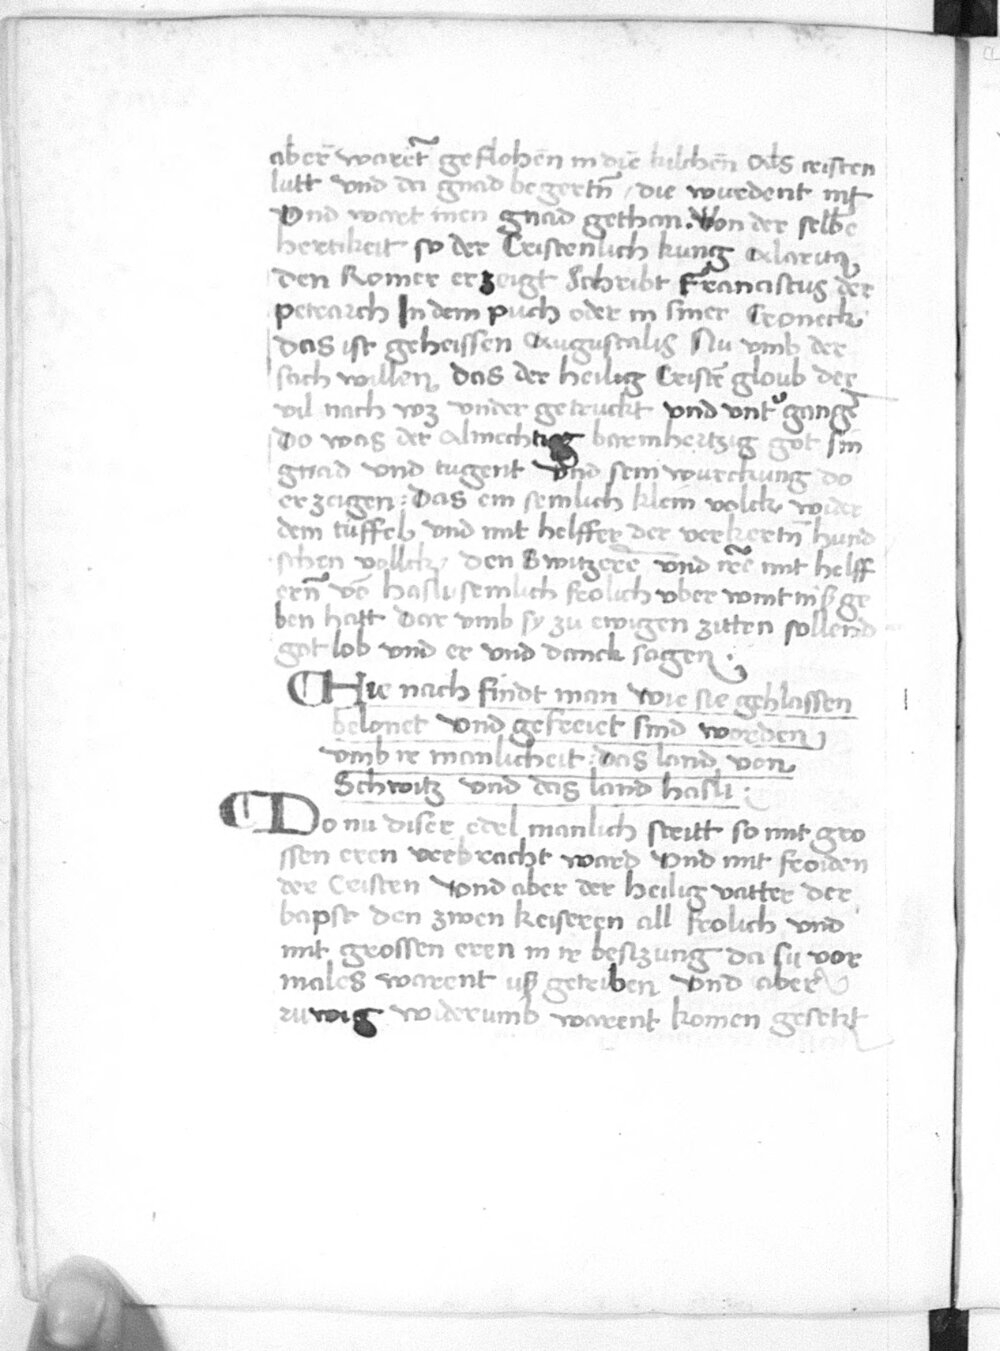 aber̄ waret̄ geflohen̄ in die kilchen̄ Als cristen
lutt vnd da gnad begertn̄ / die wurdent nit
Vnd wart inen gnad gethan. Von der selbē
hertikeit so der Cristenlich kung Alaricꝰ
den Romer erzeigt Schribt Franciscus der
petrarch In dem puch oder in siner Croneck
das ist geheissen Augustalis Nu vmb der
sach willen das der heilig Cristē gloub der
vil nach wz vnder getruckt vnd vntᵉgangē
Do was der Almechtig barmhertzig got sin
gnad vnd tugent vnd sein wurckung do
erzeigen : Das ein semlich klein volck wider
dem tuffel vnd mit helffer der verkertn̄ hund
schen vollck / den Switzerē vnd irē mit helff
ern̄ vō hasli semlich frolich vber wintniß ge
ben hatt Dar vmb sy zu ewigen zitten sollend
got lob vnd er vnd danck sagen .
Hie nach findt man wie sie gehlassen
belonet vnd gefreiet sind worden
vmb ir manlicheit : das land von
Schwitz vnd das land hasli .
Do nu diser edel manlich stritt so mit gro
ssen eren verbracht ward vnd mit froiden
der Cristen vnd aber der heilig vatter der
bapst den zwen keiseren all frolich vnd
mit grossen eren in ir besizung da su vor
males warent uß getriben vnd aber
ruwig widerumb warent komen gesetzt